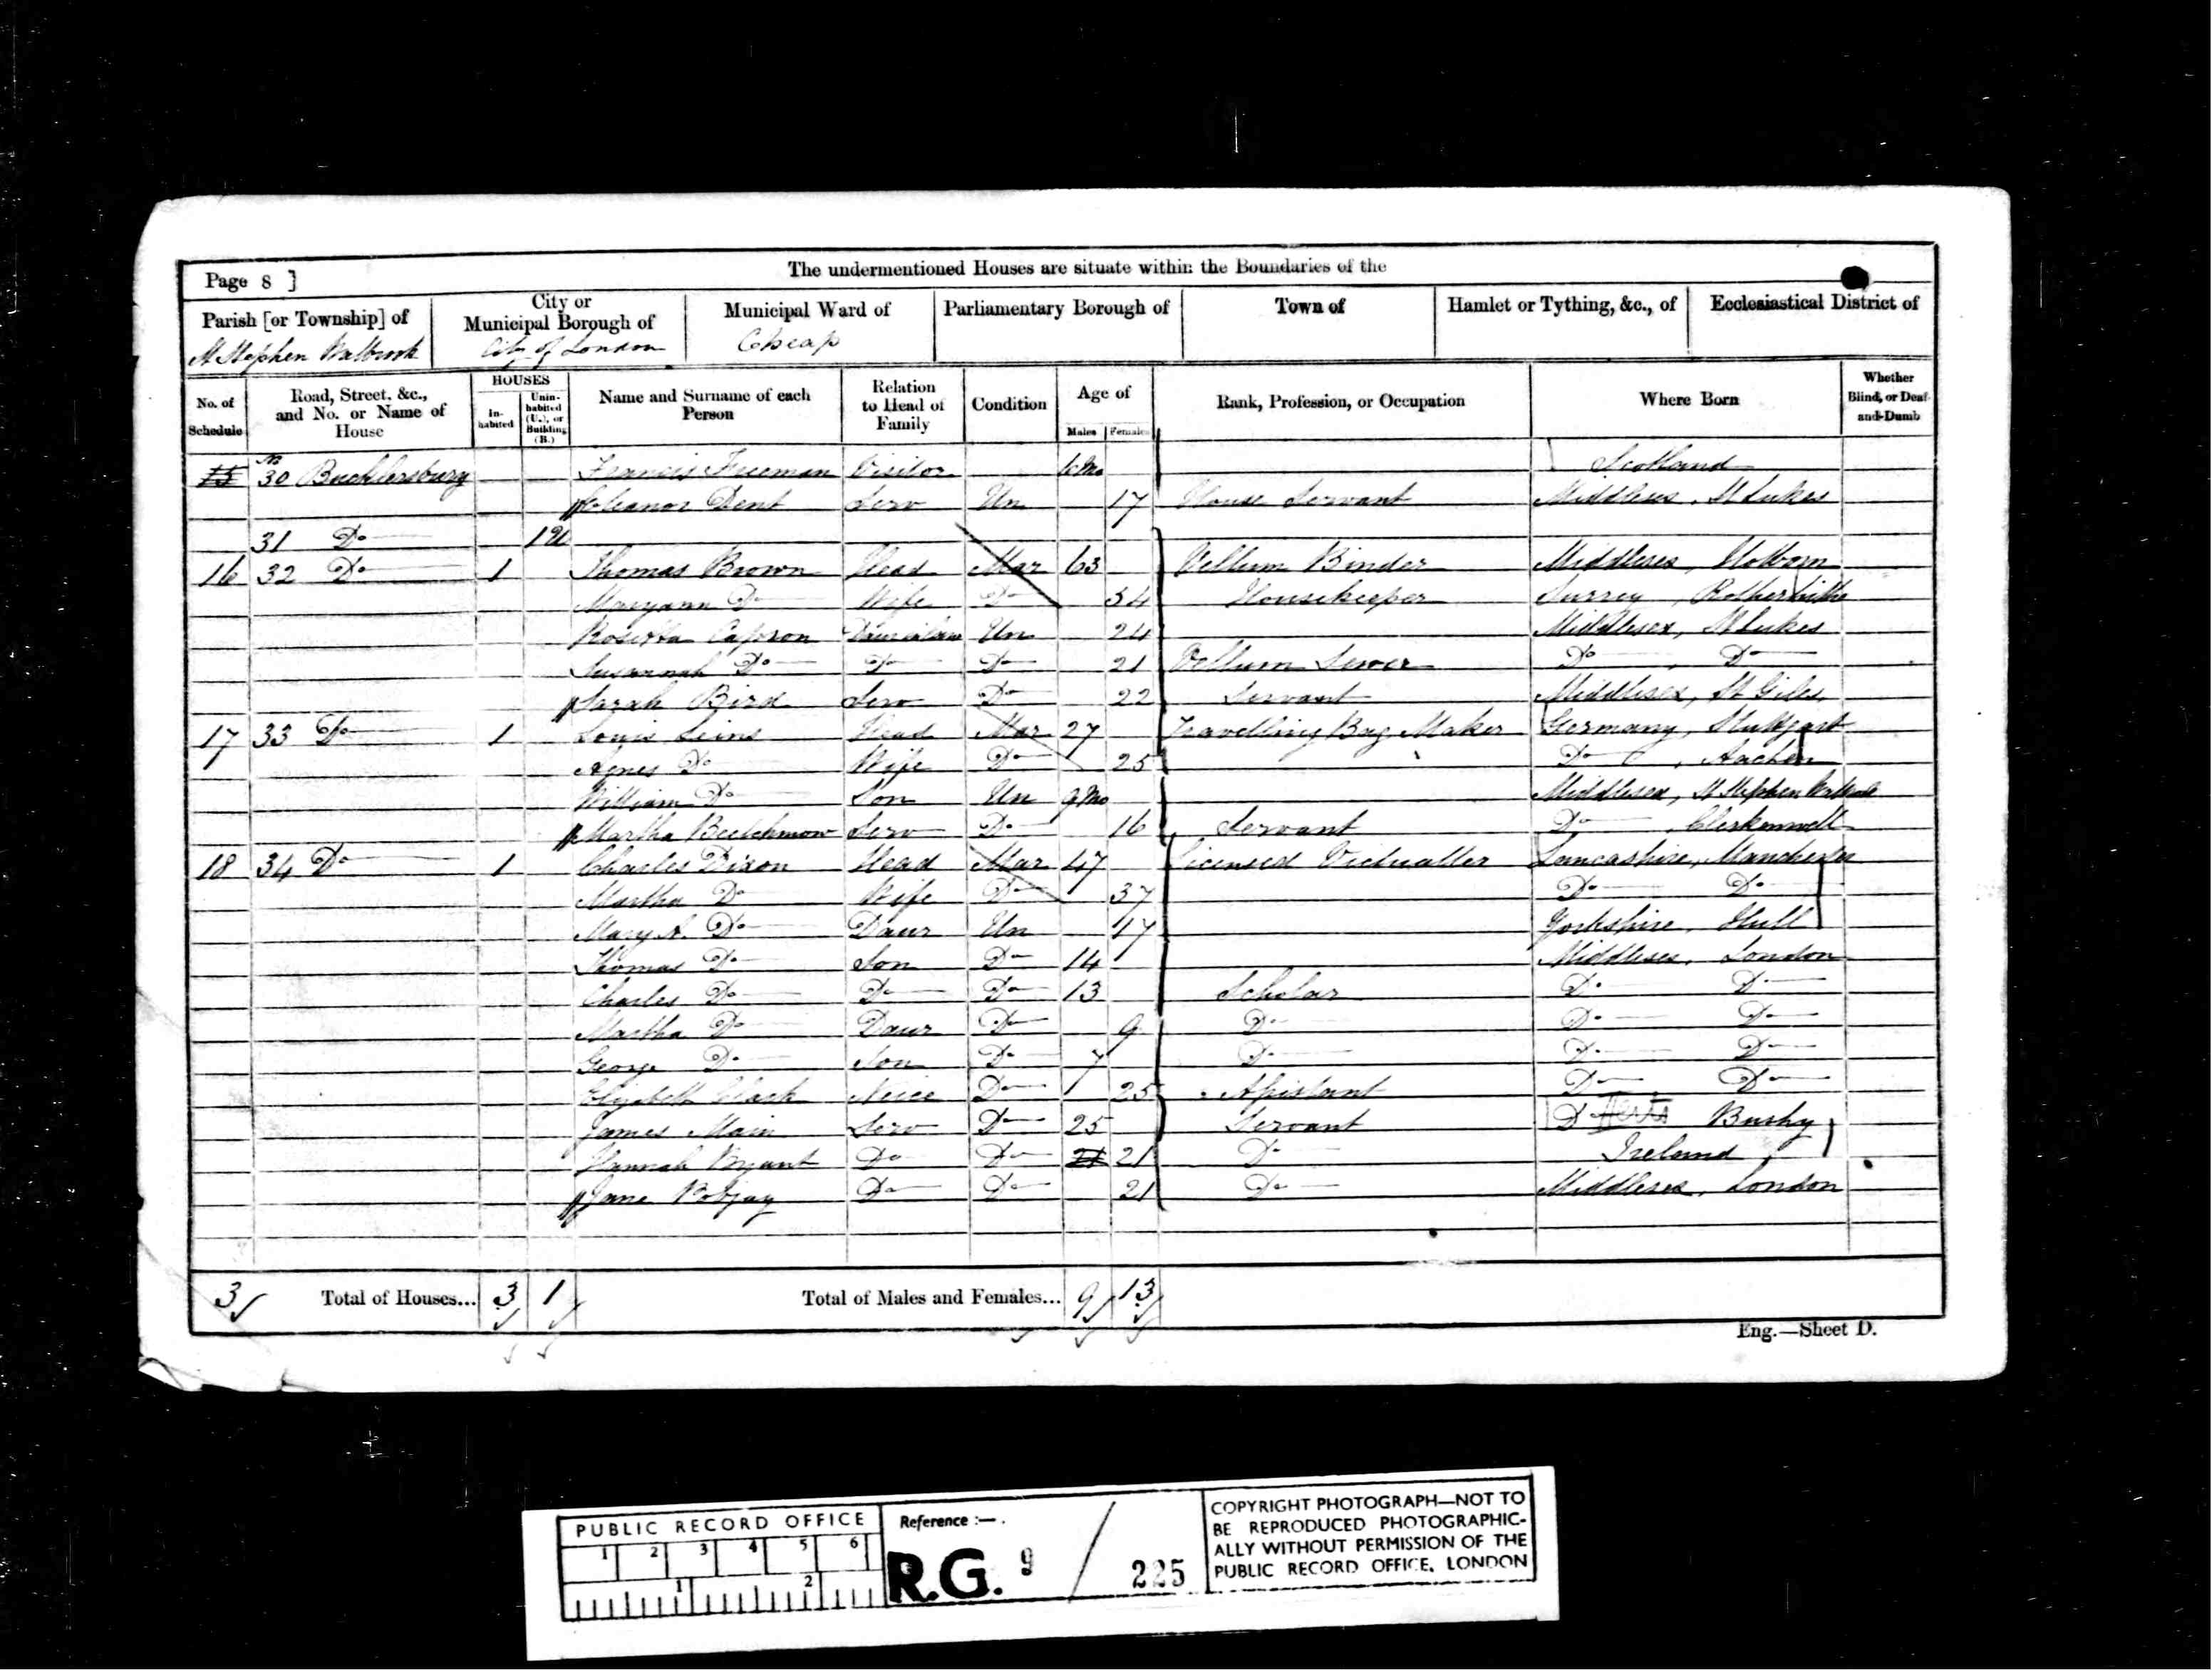 Page 8 ]
The undermentioned Houses are situate within the Boundaries of the
Parish [or Township] of
St Stephen Walbrook
City or Municipal Borough of
City of London
Municipal Ward of
Cheap
Parliamentary Borough of
Town of
Hamlet or Tything, &c., of
Ecclesiastical District of
No. of Schedule
Road, Street, &c., and No. or Name of House
HOUSES
In-habited
Unin-habited (U.), or Building (B.)
Name and Surname of each Person
Relation to Head of Family
Condition
Age of
Males Females
Rank, Profession, or Occupation
Where Born
Whether Blind, or Deaf-and-Dumb
15 No 30 Bucklersbury Francis Freeman Visitor Scotland
Eleanor Dent Serv Un 17 House Servant Middlesex, St Lukes
31 Do 1 U
16 32 Do 1 Thomas Brown Head Mar 63 Vellum Binder Middlesex, Holborn
Maryann Do Wife Do 54 Housekeeper Surrey, Rotherhithe
Capron Daurinlaw Un 24 Middlesex, St Lukes
Susannah Do Do Do 21 Vellum Sewer Do, Do
Sarah Bird Serv Do 22 Servant Middlesex, St Giles
17 33 Do 1 Louis Leins Head Mar 27 Travelling Bag Maker Germany, Stuttgart
Agnes Do Wife Do 25 Do, Aachen
William Do Son Un 9 Mo Middlesex, St Stephen Walbrook
Martha Serv Do 16 Servant Do, Clerkenwell
18 34 Do 1 Charles Dixon Head Mar 47 Licensed Victualler Lancashire, Manchester
Martha Do Wife Do 37 Do Do
Mary A. Do Daur Un 17 Yorkshire, Hull
Thomas Do Son Do 14 Middlesex, London
Charles Do Do Do 13 Scholar Do Do
Martha Do Daur Do 9 Do Do Do
George Do Son Do 7 Do Do Do
Elizabeth Neice Do 25 Assistant Do Do
James Main Serv Do 25 Servant Do Herts Bushy
Hannah Bryant Do Do 21 21 Do Ireland
Jane Do Do 21 Do Middlesex, London
3 Total of Houses... 3 1 Total of Males and Females... 9 13
Eng.—Sheet D.
PUBLIC RECORD OFFICE
1 2 3 4 5 6
1 2
Reference :—
R.G. 9 / 225
COPYRIGHT PHOTOGRAPH—NOT TO
BE REPRODUCED PHOTOGRAPHIC-
ALLY WITHOUT PERMISSION OF THE
PUBLIC RECORD OFFICE, LONDON